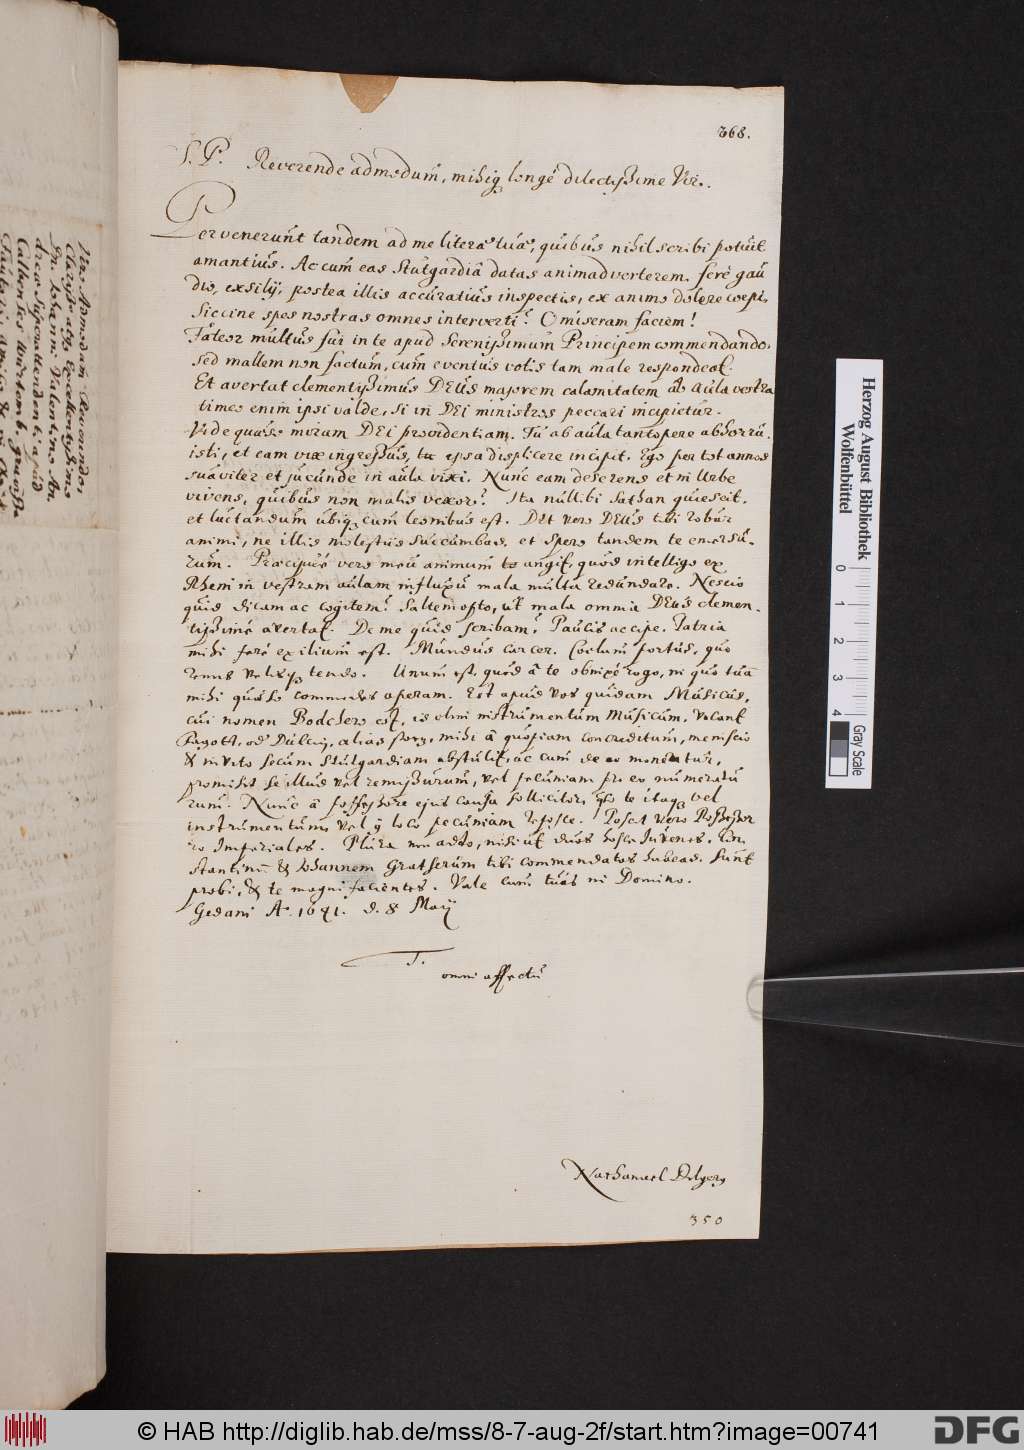 368.
S. P. Reverende admodum, mihiq longè dilectissime Vir.
Pervenerunt tandem ad me literæ tuæ, quibus nihil scribi potuit
amantius. Ac cum eas Stutgardiâ datas animadverterem, ferè gau
dio exsilij, postea illis accuratius inspectis, ex animo dolere coepi.
Siccine spes nostras omnes interverti? O miseram faciem!
Fateor multus fui in te apud Serenissimum Principem commendando,
sed mallem non factum, cum eventus votis tam male respondeat.
Et avertat clementissimus DEUS majorem calamitatem ab Aula vestra
timeo enim ipsi valde, si in DEI ministros peccari incipietur.
Vide quæso miram DEI providentiam. Tu ab aula tantopere abhorru,
isti, et eam vix ingressus, tu ipsa displicere incipit. Ego per tot annos
suaviter et jucunde in aula vixi. Nunc eam deserens et in Urbe
vivens, quibus non malis vexor? Ita nullibi Sathan quiescit,
et luctandum ubiq cum leonibus est. Det vero DEUS tibi robur
animi, ne illis molestiis succumbas, et spero tandem te emersu,
rum. Præcipuè vero meu animum angit, quod intelligo ex
Rheni in vestram aulam influxu mala multa redundare. Nescio
quid dicam ac cogitem? Saltem opto, ut mala omnia DEUS clemen,
tissimè avertat. De me quid scribam? Paucis accipe. Patria
mihi ferè exilium est. Mundus carcer. Coelum portus, quo
remis velisq tendo. Unum est, quod â te obnixè rogo, in quo tuã
mihi quæso commodes operam. Est apud vos quidam Musicus,
cui nomen Bodchero est, is olim instrumentum Musicum, vocant
Fagott, od Dulcin, alias mihi â quopiam concreditum, me inscio
& invito secum Stutgardiam abstulit, ac cum de eo monetur,
promisit se illud vel remissurum, vel pecuniam pro eo numeratu
rum. Nunc â possessore ejus causa sollicitor, te itaq vel
instrumentum vel loco pecuniam reposce. Poscit vero Possessor
Imperiales. Plura non addo, nisi ut duos hosce Juvenes, Con
stantinũ & Johannem Gratserum tibi commendatos habeas. Sunt
probi, & te magni facientes. Vale cum tuis in Domino.
Gedani A. 1641. d. 8 Maij
T.
omni affectu
Nathanael Dilgerus
350
Vir. Admodum Reverendo,
Clarissº atq Excellentissimo
Dn. Johanni Valentino An,
dreæ Superattendenti apud
Calvenses Wirtemb. gravissº
Herzog August Bibliothek
Wolfenbüttel
0 1 2 3 4
Gray Scale
© HAB http://diglib.hab.de/mss/8-7-aug-2f/start.htm?image=00741
DFG